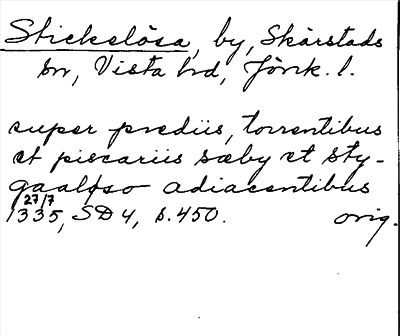 Stickelösa, by, Skärstads
sn, Vista hd, Jönk. l.
super prediis, torrentibus
et piscariis sæby et sty-
gaaløso adiacentibus
27/7
1335, SD 4, s. 450. orig.